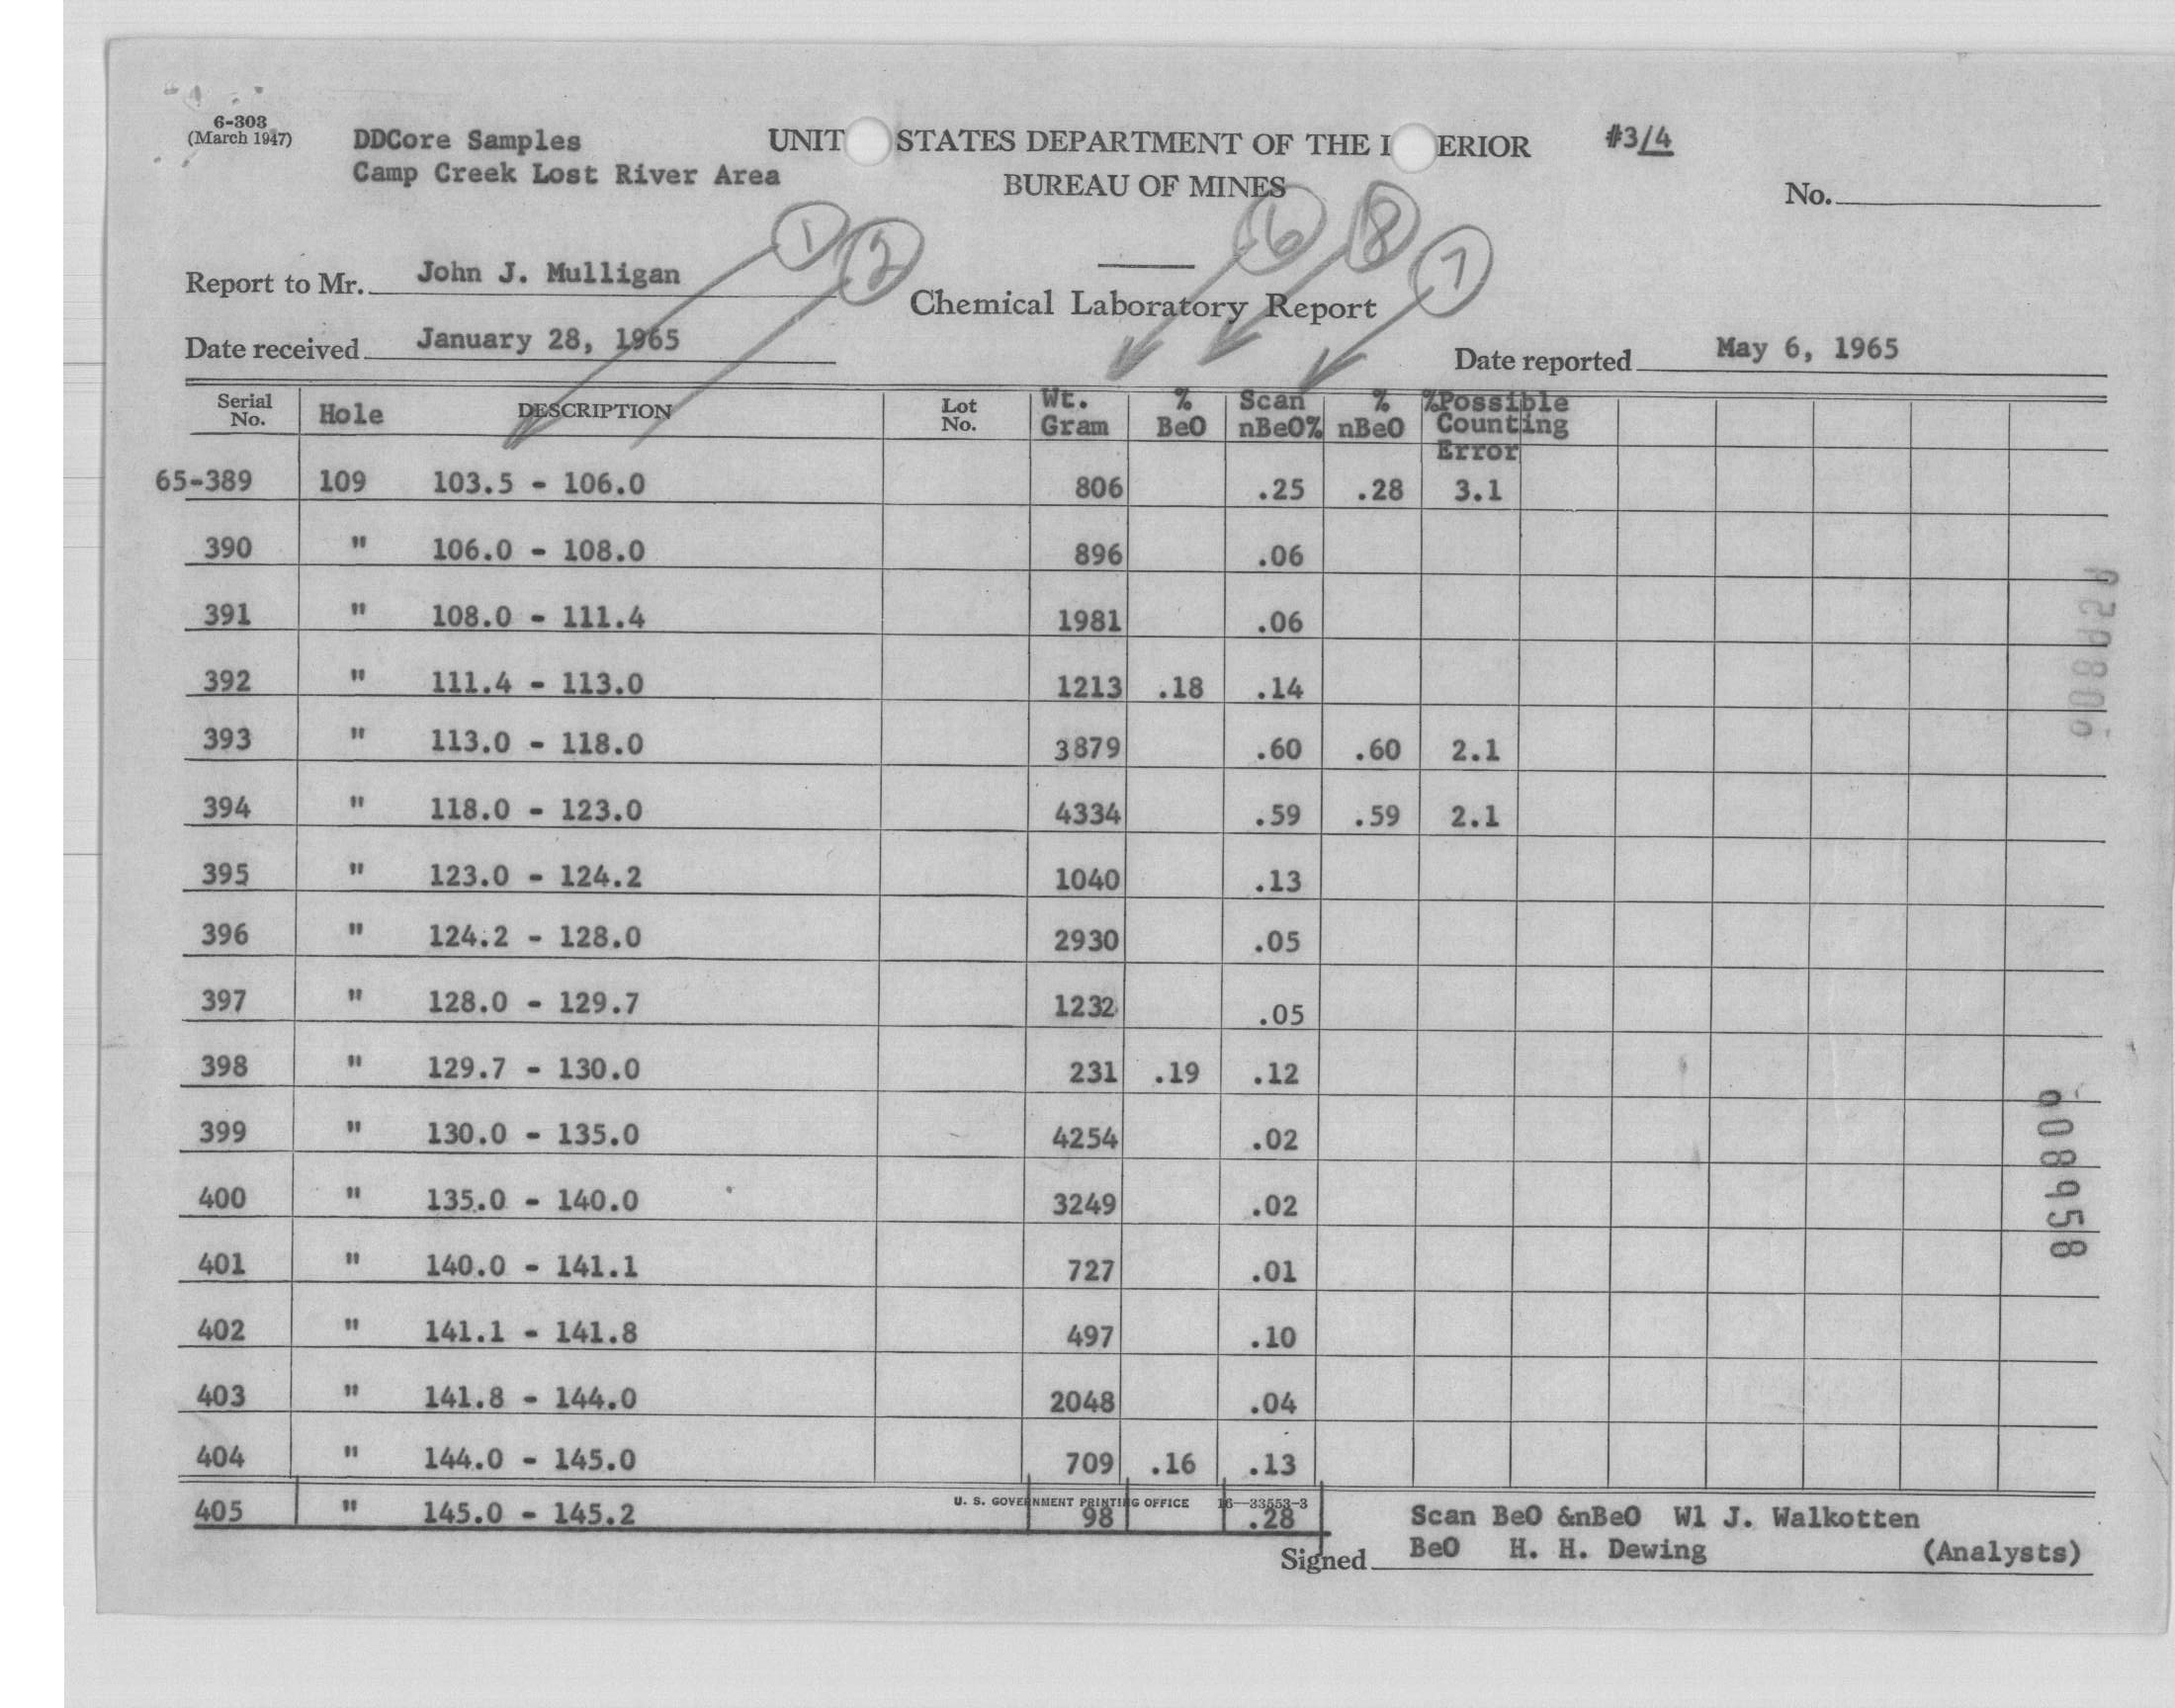 6-303
(March 1947)
DDCore Samples
Camp Creek Lost River Area
UNIT STATES DEPARTMENT OF THE I ERIOR
BUREAU OF MINES
#3/4
No.
1 2 6 8 7
Report to Mr. John J. Mulligan
Chemical Laboratory Report
Date received January 28, 1965
Date reported May 6, 1965
Serial No. Hole DESCRIPTION Lot No. Wt. Gram % BeO Scan nBeO% % nBeO %Possible Counting Error
65-389 109 103.5 - 106.0 806 .25 .28 3.1
390 " 106.0 - 108.0 896 .06
391 " 108.0 - 111.4 1981 .06
392 " 111.4 - 113.0 1213 .18 .14
393 " 113.0 - 118.0 3879 .60 .60 2.1
394 " 118.0 - 123.0 4334 .59 .59 2.1
395 " 123.0 - 124.2 1040 .13
396 " 124.2 - 128.0 2930 .05
397 " 128.0 - 129.7 1232 .05
398 " 129.7 - 130.0 231 .19 .12
399 " 130.0 - 135.0 4254 .02
400 " 135.0 - 140.0 3249 .02
401 " 140.0 - 141.1 727 .01
402 " 141.1 - 141.8 497 .10
403 " 141.8 - 144.0 2048 .04
404 " 144.0 - 145.0 709 .16 .13
U. S. GOVERNMENT PRINTING OFFICE 16—33553-3
405 " 145.0 - 145.2 98 .28
Scan BeO &nBeO Wl J. Walkotten
Signed BeO H. H. Dewing (Analysts)